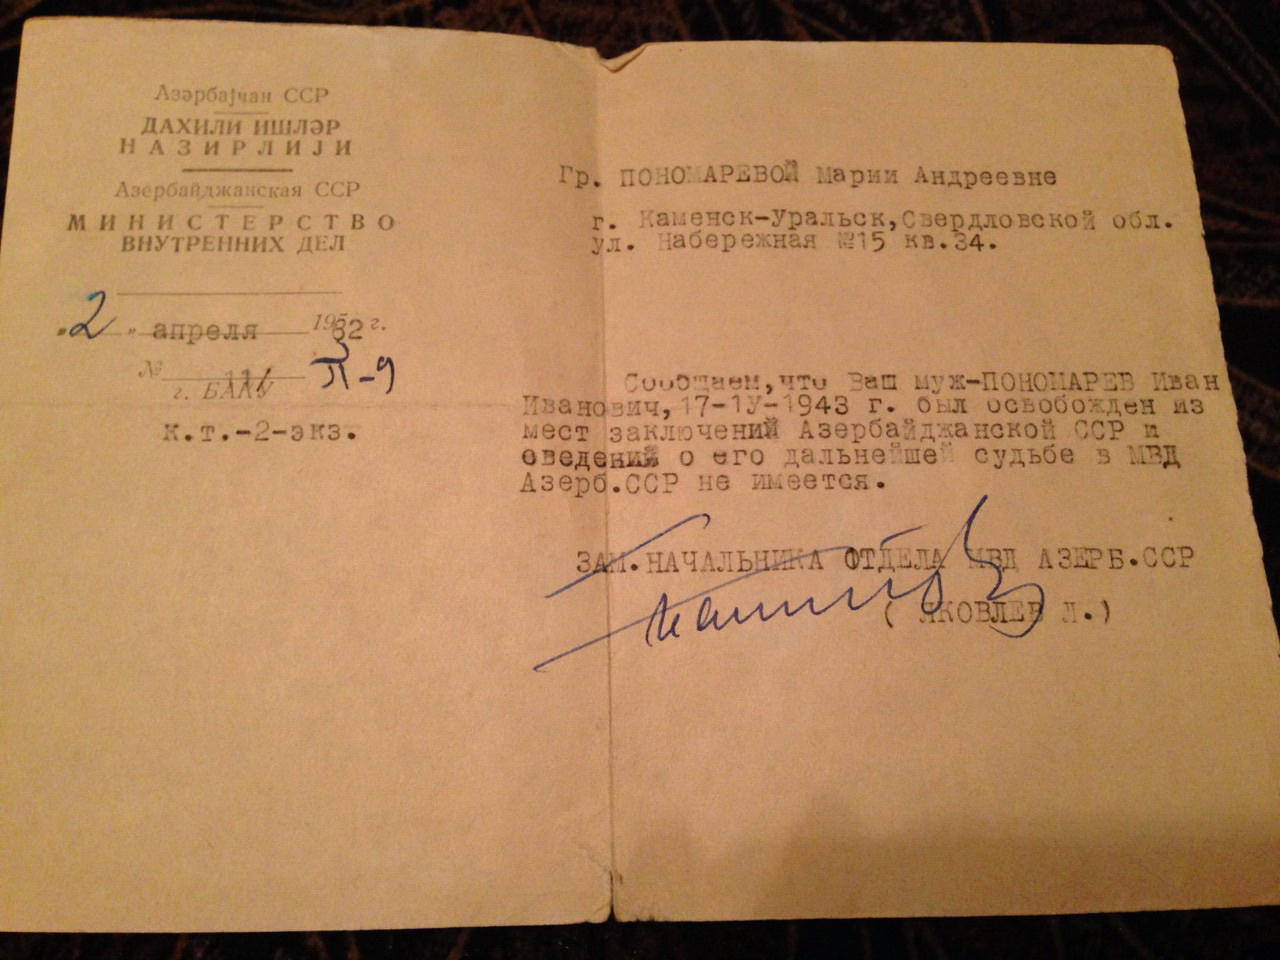 Азәрбајҹан ССР
ДАХИЛИ ИШЛӘР
НАЗИРЛИЈИ
Азербайджанская ССР
МИНИСТЕРСТВО
ВНУТРЕННИХ ДЕЛ
„2„ апреля 1962 г.
№ П-9
г. БАКУ
к.т.-2-экз.
Гр. ПОНОМАРЕВОЙ Марии Андреевне
г. Каменск-Уральск,Свердловской обл.
ул. Набережная №15 кв.34.
Сообщаем,что Ваш муж-ПОНОМАРЕВ Иван
Иванович,17-1У-1943 г. был освобожден из
мест заключений Азербайджанской ССР и
сведений о его дальнейшей судьбе в МВД
Азерб.ССР не имеется.
ЗАМ.НАЧАЛЬНИКА ОТДЕЛА МВД АЗЕРБ.ССР
( ЯКОВЛЕВ Л.)